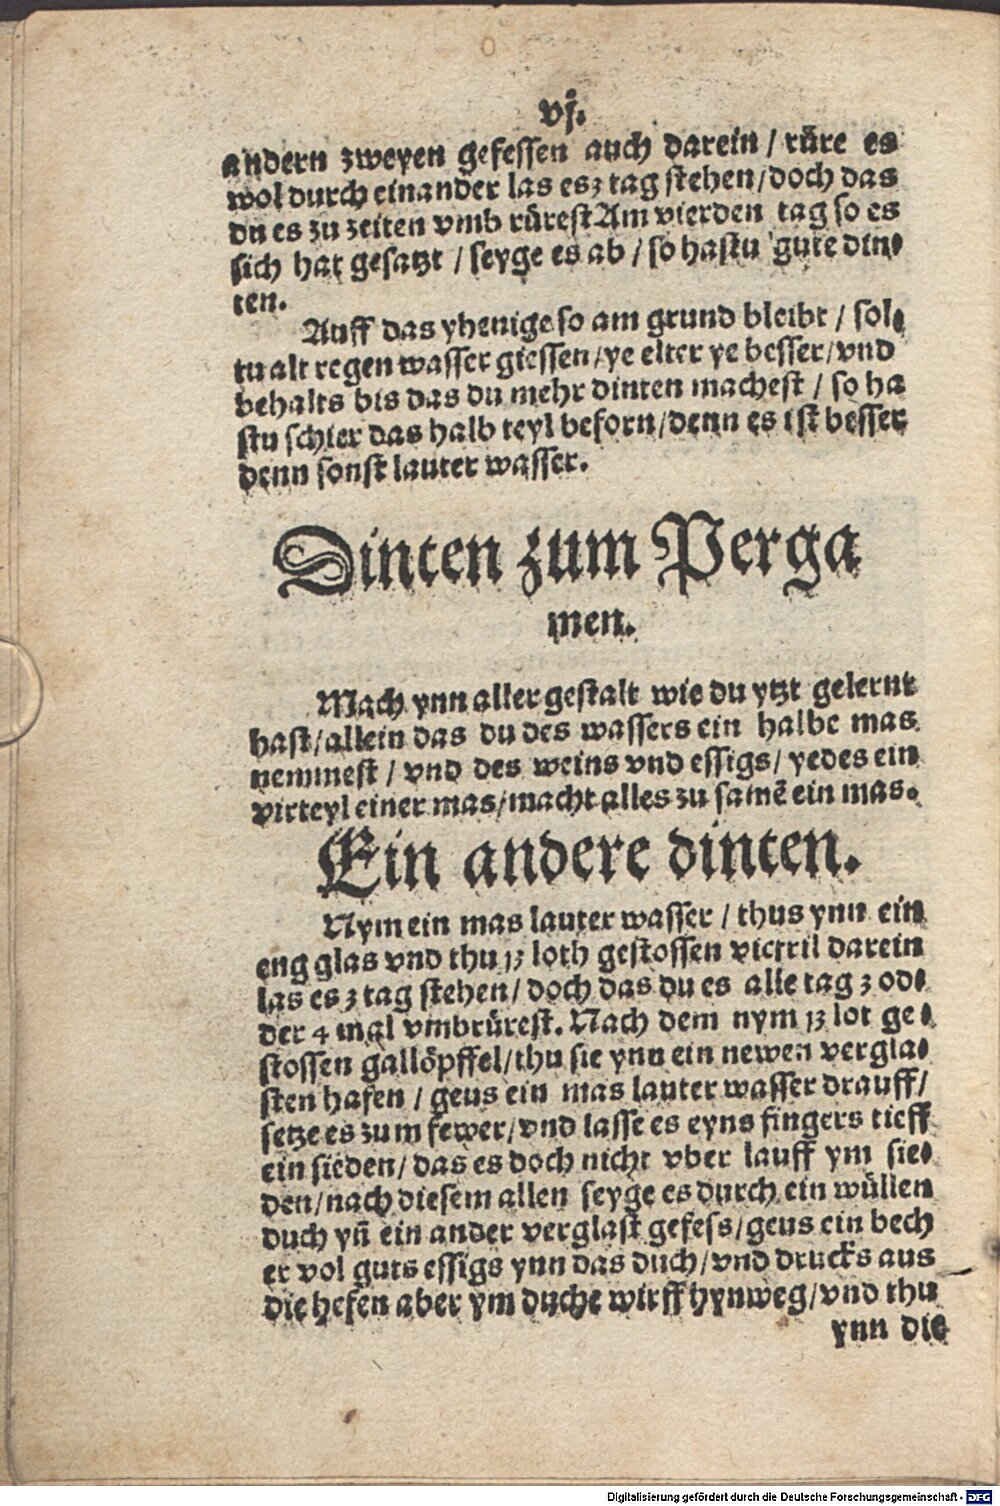 vj.
andern zweyen gefessen auch darein / rüre es
wol durch einander las es 3 tag stehen / doch das
du es zu zeiten vmb rürest Am vierden tag so es
sich hat gesatzt / seyge es ab / so hastu gute din⸗
ten.
Auff das yhenige so am grund bleibt / sol⸗
tu alt regen wasser giessen / ye elter ye besser / vnd
behalts bis das du mehr dinten machest / so ha
stu schier das halb teyl beforn / denn es ist besser
denn sonst lauter wasser.
Dinten zum Perga
men.
Mach ynn aller gestalt wie du ytzt gelernt
hast / allein das du des wassers ein halbe mas
nemmest / vnd des weins vnd essigs / yedes ein
virteyl einer mas / macht alles zu samē ein mas.
Ein andere dinten.
Nym ein mas lauter wasser / thus ynn ein
eng glas vnd thu loth gestossen victril darein
las es 3 tag stehen / doch das du es alle tag 3 od⸗
der 4 mal vmbrürest. Nach dem nym lot ge⸗
stossen gallöpffel / thu sie ynn ein newen vergla⸗
sten hafen / geus ein mas lauter wasser drauff /
setze es zum fewer / vnd lasse es eyns fingers tieff
ein sieden / das es doch nicht vber lauff ym sie⸗
den / nach diesem allen seyge es durch ein wüllen
duch yn̄ ein ander verglast gefess / geus ein bech
er vol guts essigs ynn das duch / vnd drucks aus
die hefen aber ym duche wirff hynweg / vnd thu
ynn die
Digitalisierung gefördert durch die Deutsche Forschungsgemeinschaft - DFG